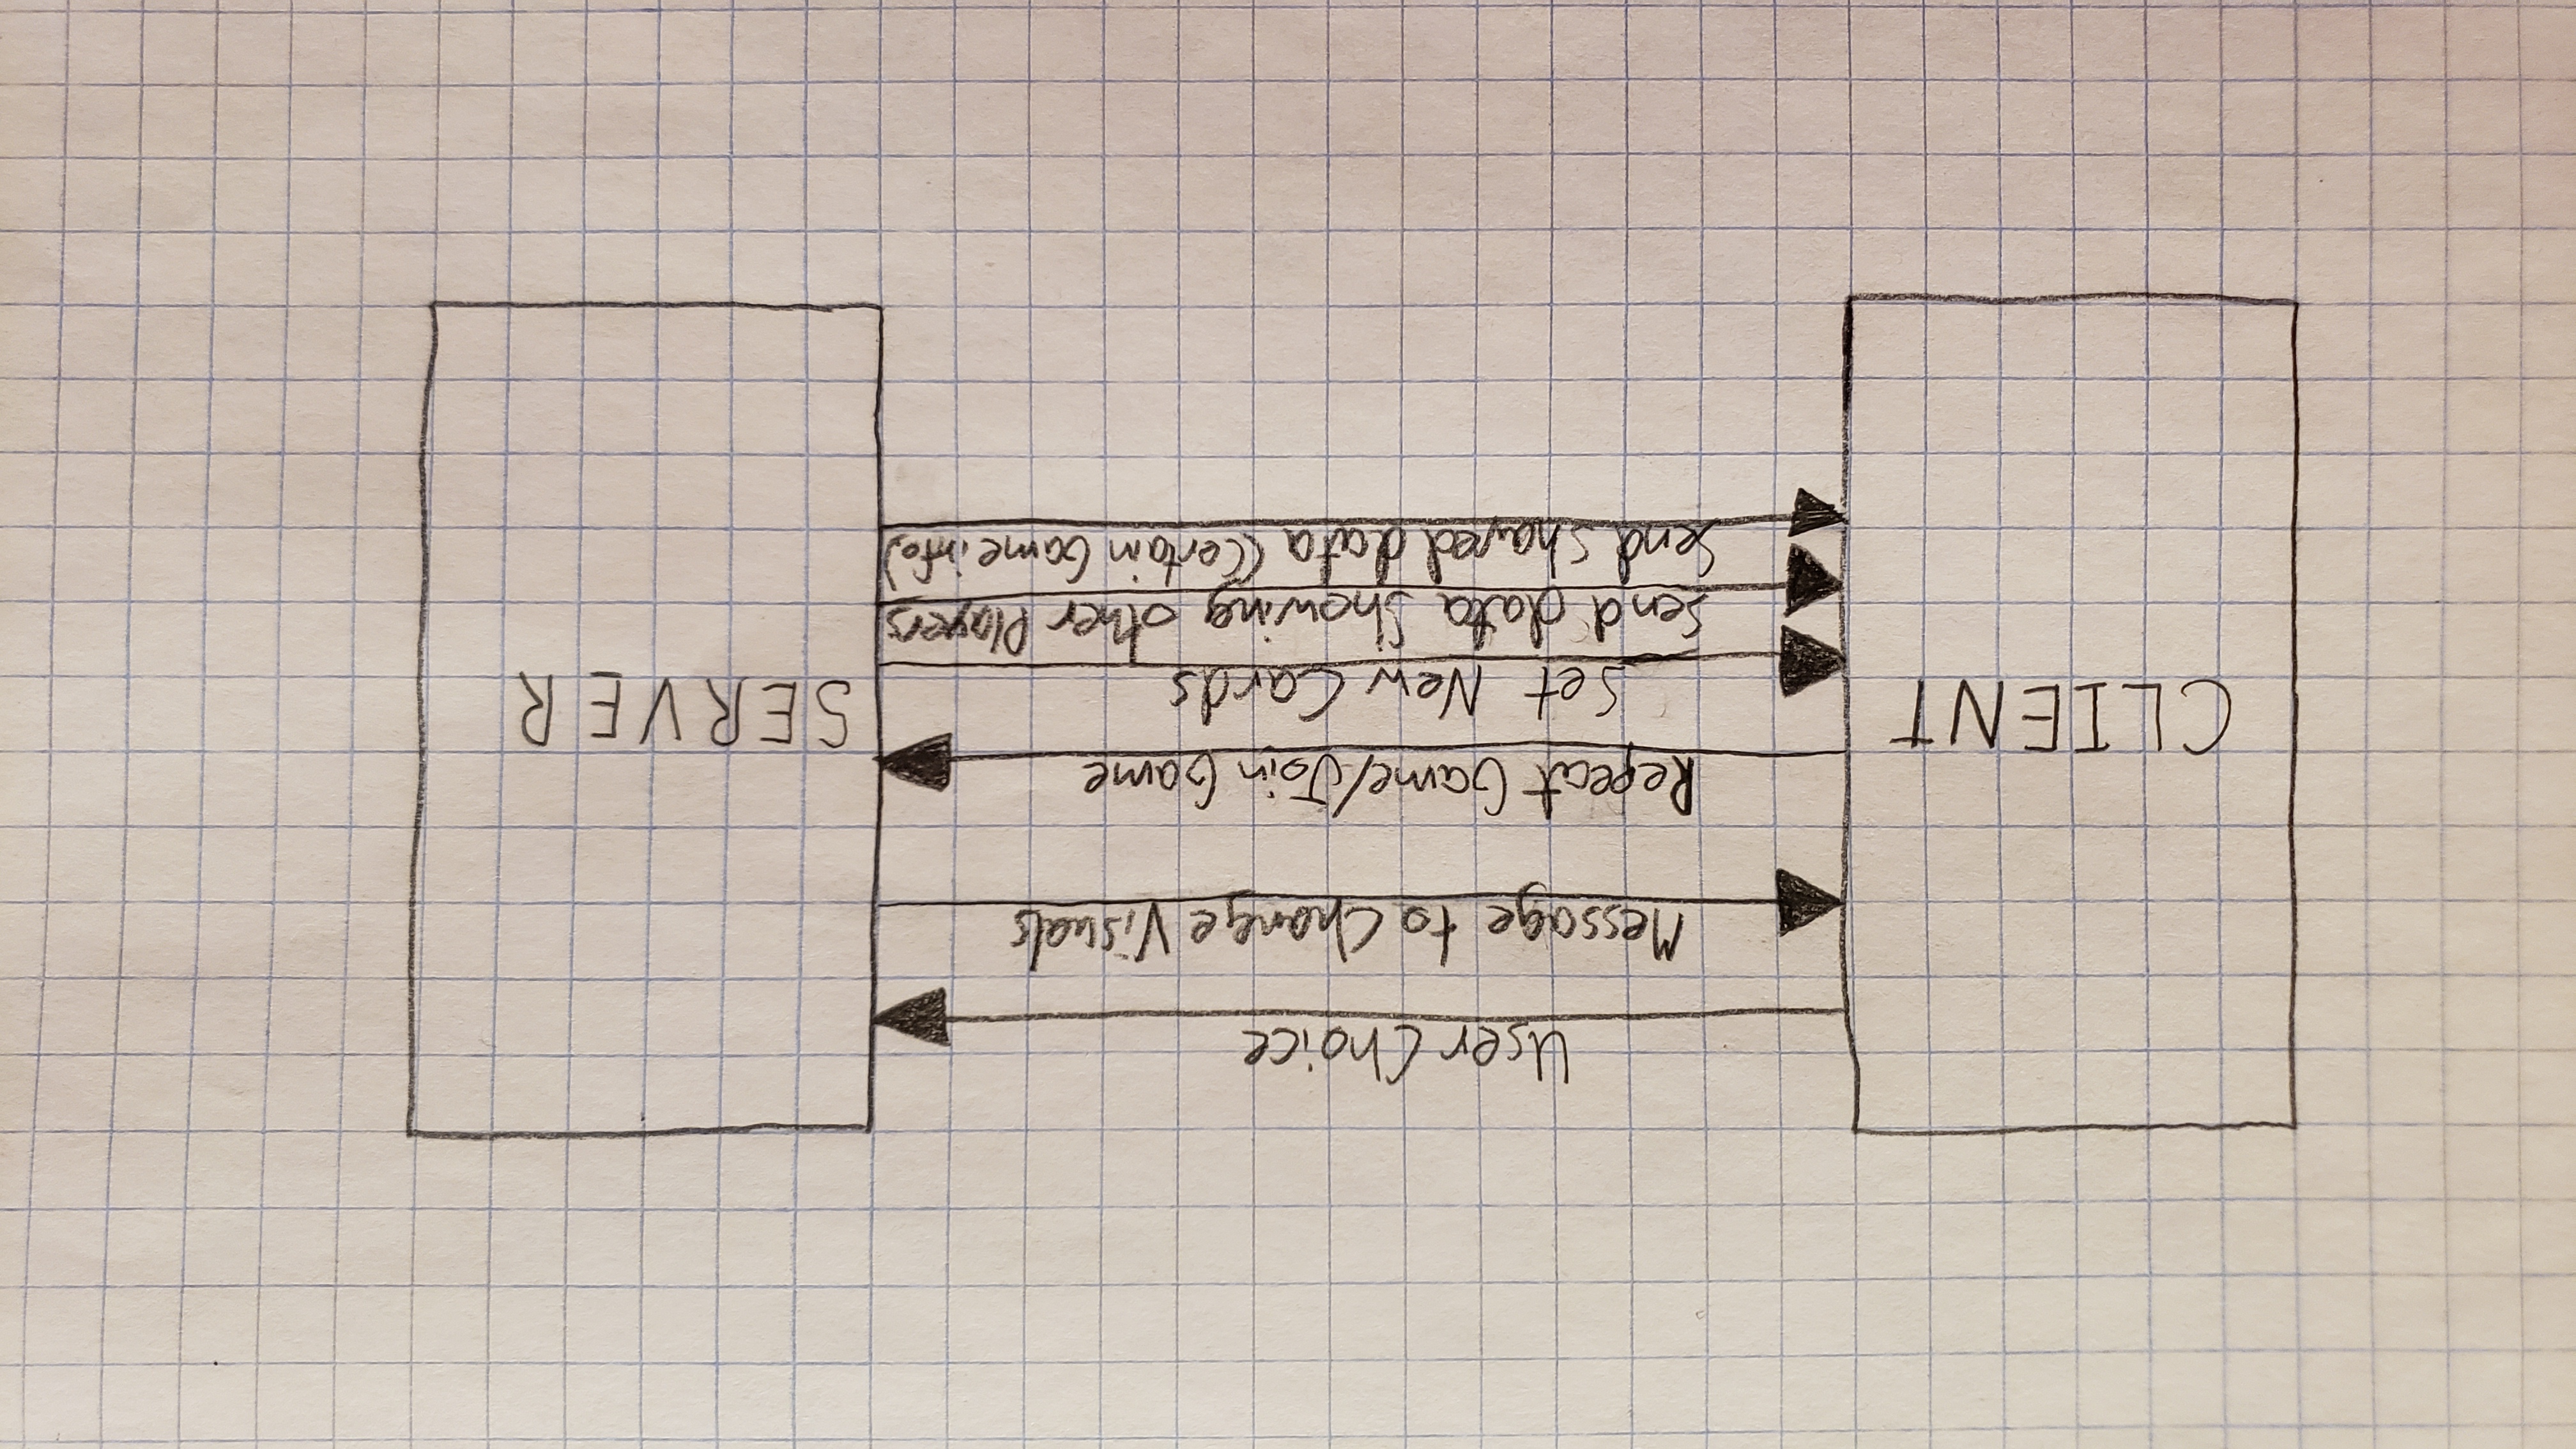 User Choice
Message to Change Visuals
Repeat Game/Join Game
CLIENT
SERVER
Set New Cards
Send data Showing other Players
Send shared data (Certain Game info)